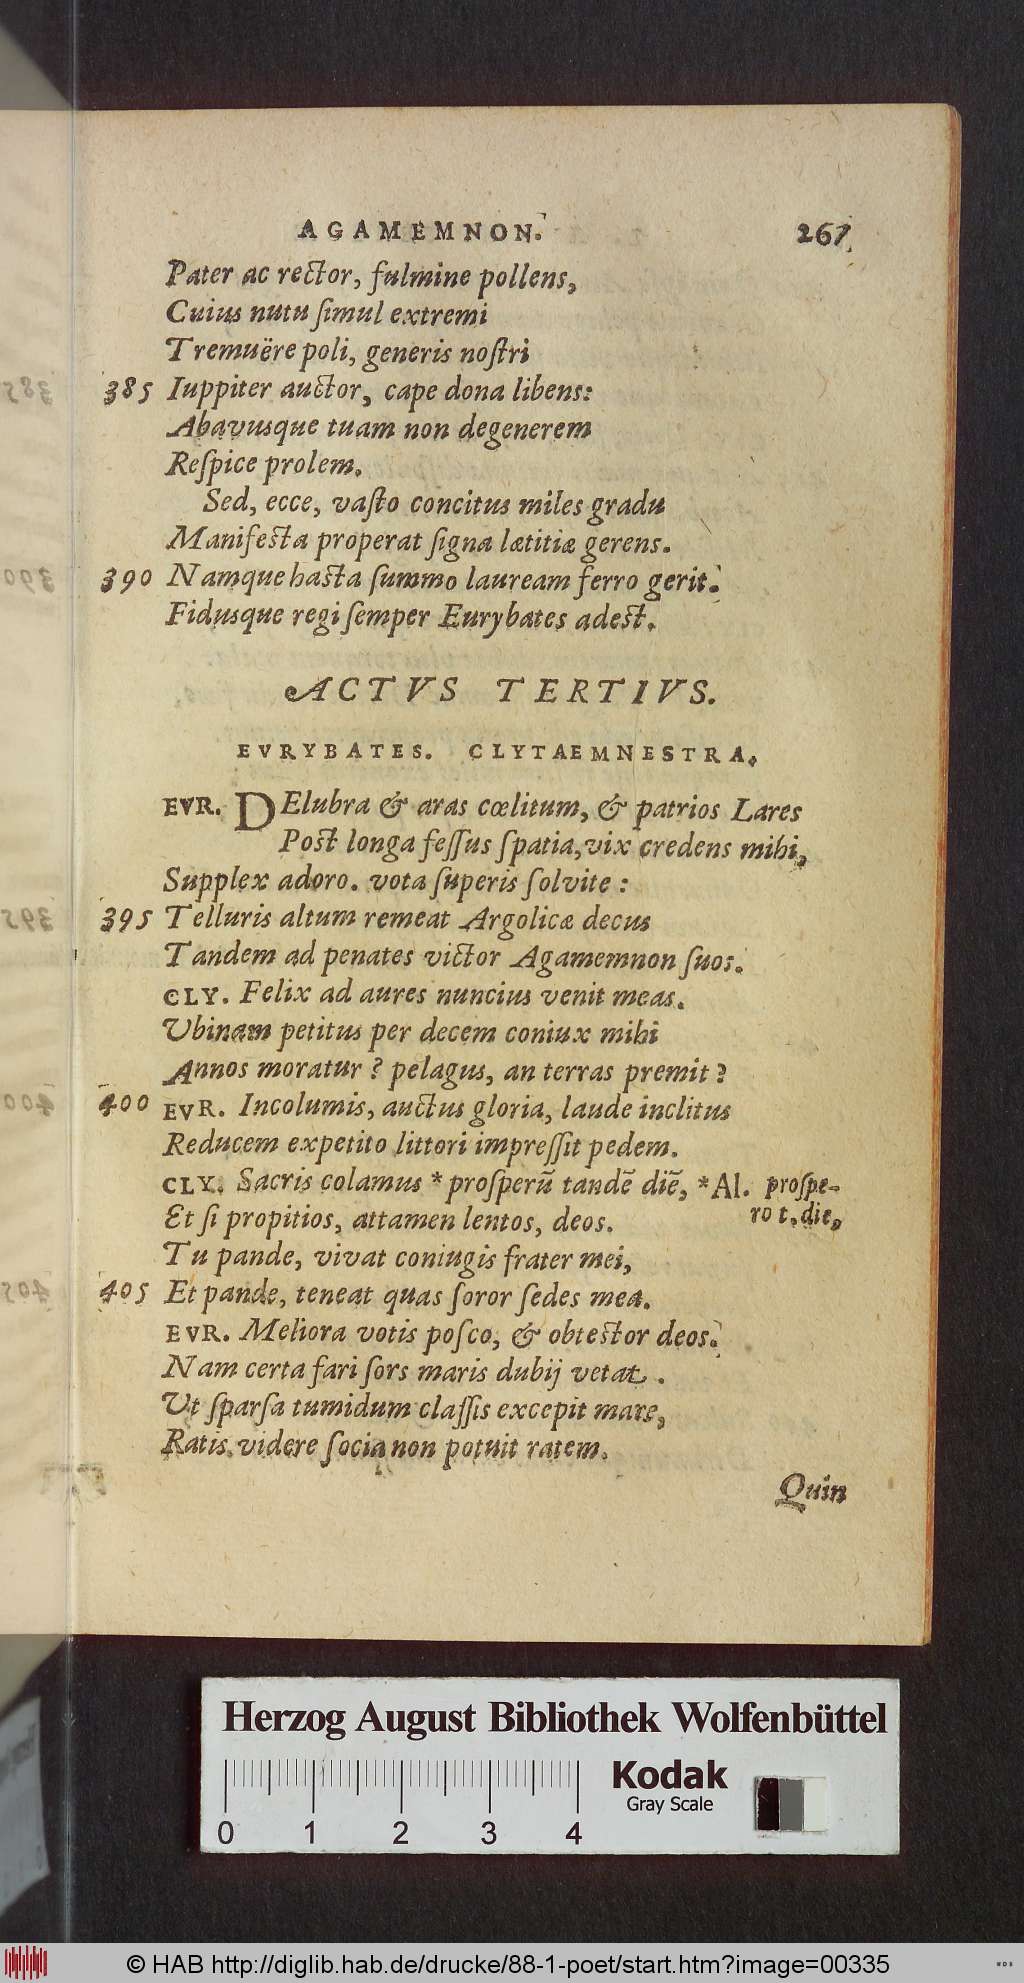 AGAMEMNON. 267
Pater ac rector, fulmine pollens,
Cuius nutu ſimul extremi
Tremuëre poli, generis noſtri
385 Iuppiter auctor, cape dona libens:
Abavusque tuam non degenerem
Reſpice prolem.
Sed, ecce, vaſto concitus miles gradu
Manifeſta properat ſigna lætitiæ gerens.
390 Namque haſta ſummo lauream ferro gerit.
Fidusque regi ſemper Eurybates adeſt.
ACTVS TERTIVS.
EVRYBATES. CLYTAEMNESTRA.
EVR. DElubra & aras cœlitum, & patrios Lares
Poſt longa feſſus ſpatia, vix credens mihi,
Supplex adoro. vota ſuperis ſolvite:
395 Telluris altum remeat Argolicæ decus
Tandem ad penates victor Agamemnon ſuos.
CLY. Felix ad aures nuncius venit meas.
Ubinam petitus per decem coniux mihi
Annos moratur? pelagus, an terras premit?
400 EVR. Incolumis, auctus gloria, laude inclitus
Reducem expetito littori impreſſit pedem.
CLY. Sacris colamus * proſperũ tandẽ diẽ, *Al. proſpe-
Et ſi propitios, attamen lentos, deos. ro t. die,
Tu pande, vivat coniugis frater mei,
405 Et pande, teneat quas ſoror ſedes mea.
EVR. Meliora votis poſco, & obteſtor deos.
Nam certa fari ſors maris dubij vetat.
Ut ſparſa tumidum claſſis excepit mare,
Ratis videre ſocia non potuit ratem.
Quin
Herzog August Bibliothek Wolfenbüttel
Kodak
Gray Scale
0 1 2 3 4
© HAB http://diglib.hab.de/drucke/88-1-poet/start.htm?image=00335